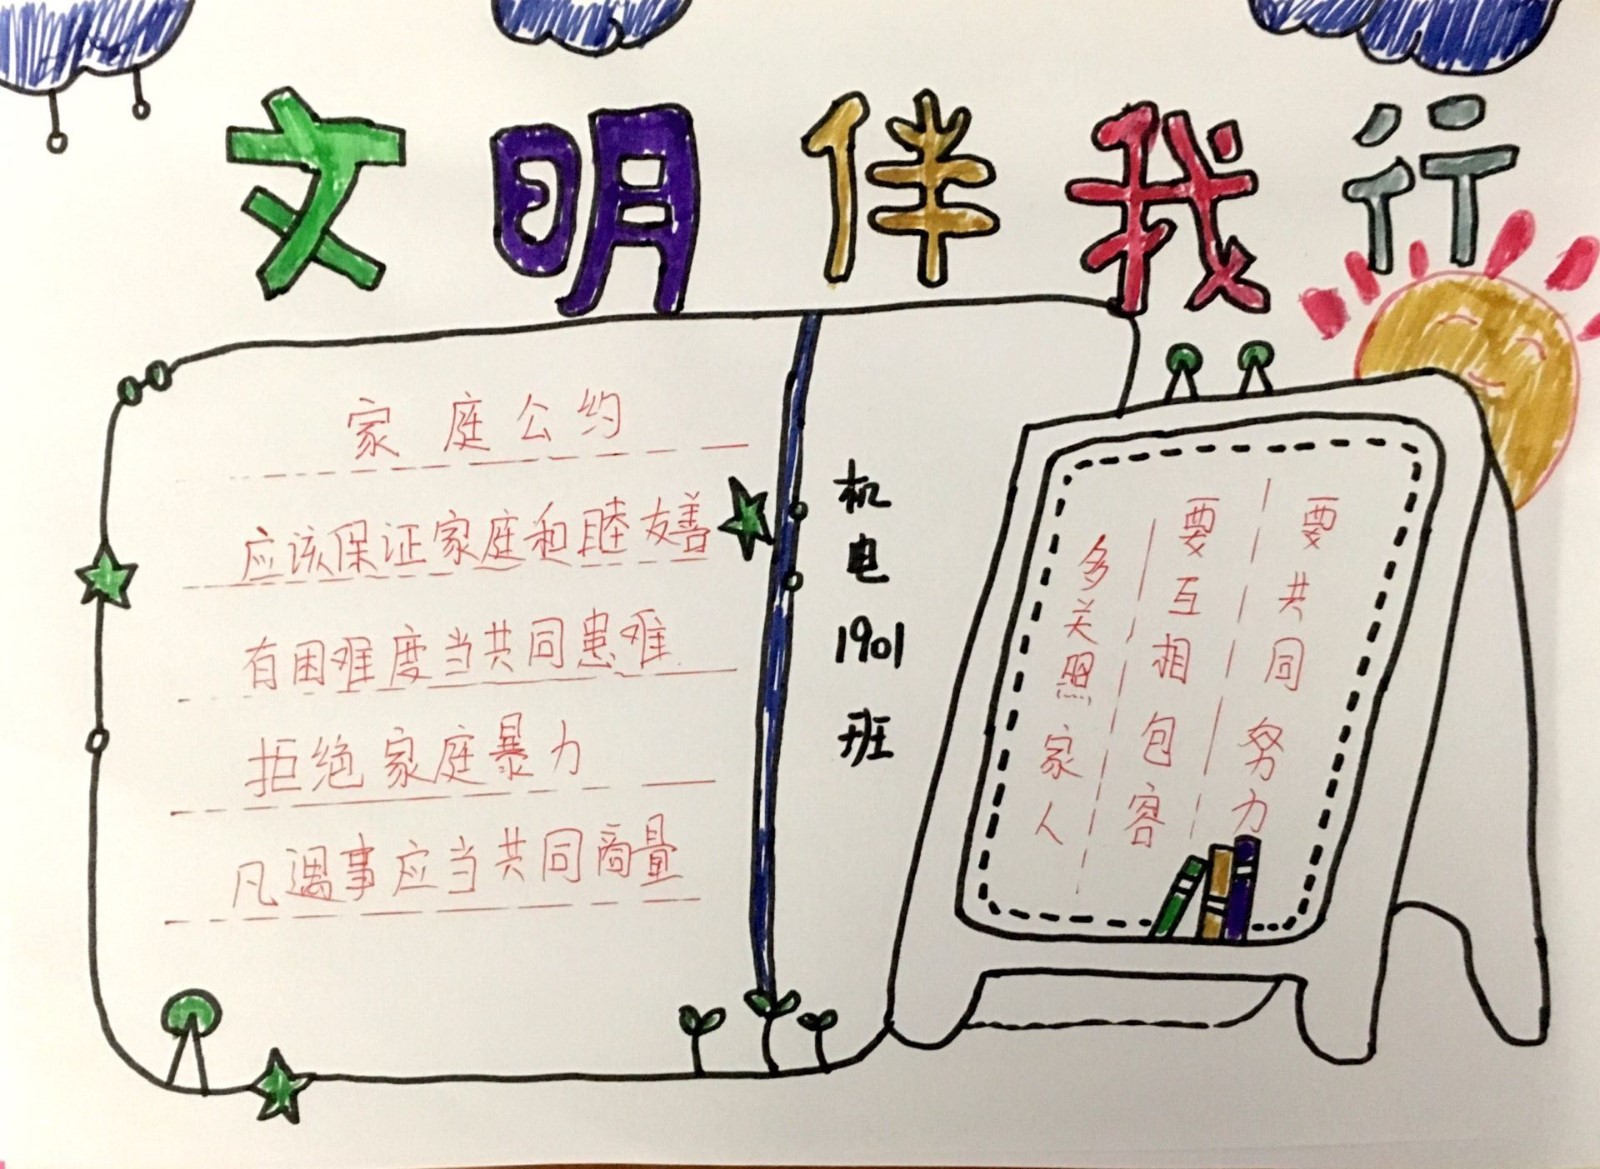 文明伴我行
家庭公约
应该保证家庭和睦友善
有困难度当共同患难
拒绝家庭暴力
凡遇事应当共同商量
机电1901班
要共同努力
要互相包容
多关照家人